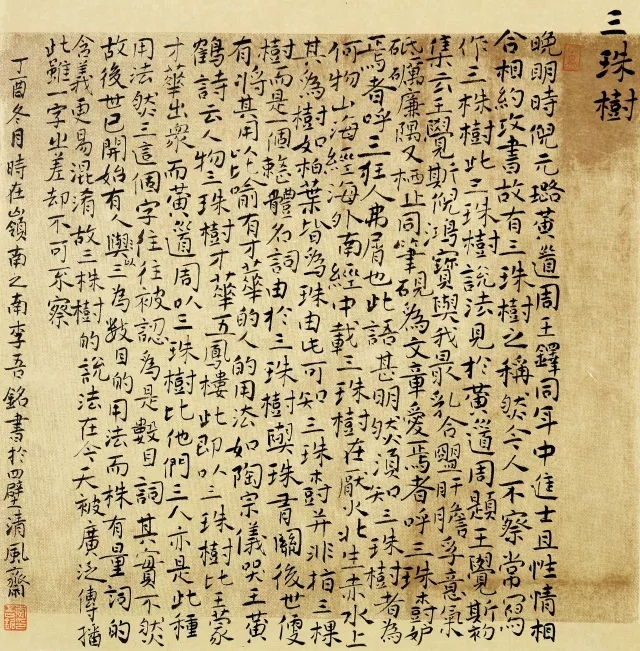 三珠樹
晚明時倪元璐黃道周王鐸同年中進士且性情相
合相約攻書故有三珠樹之稱然今人不察常寫
作三株樹此三珠樹說法見於黃道周題王覺斯初
集云王覺斯倪鴻寶與我最乳合盟肝膽孚意氣
砥礪廉隅又栖止同筆硯為文章愛焉者呼三珠樹妒
焉者呼三狂人弗屑也此語甚明然須知三珠樹者為
何物山海經海外南經中載三珠樹在厭火北生赤水上
其為樹如柏葉皆為珠由此可知三珠樹并非指三棵
樹而是一個整體名詞由於三珠樹與珠有關後世便
有將其用以比喻有才華的人的用法如陶宗儀哭王黃
鶴詩云人物三珠樹才華五鳳樓此即以三珠樹比王蒙
才華出衆而黃道周以三珠樹比他們三人亦是此種
用法然三這個字往往被認為是數目詞其實不然
故後世已開始有人以三為數目的用法而株有量詞的
含義更易混淆故三株樹的說法在今天被廣泛傳播
此雖一字之差却不可不察
丁酉冬月時在嶺南之南李吾銘書於四壁清風齋